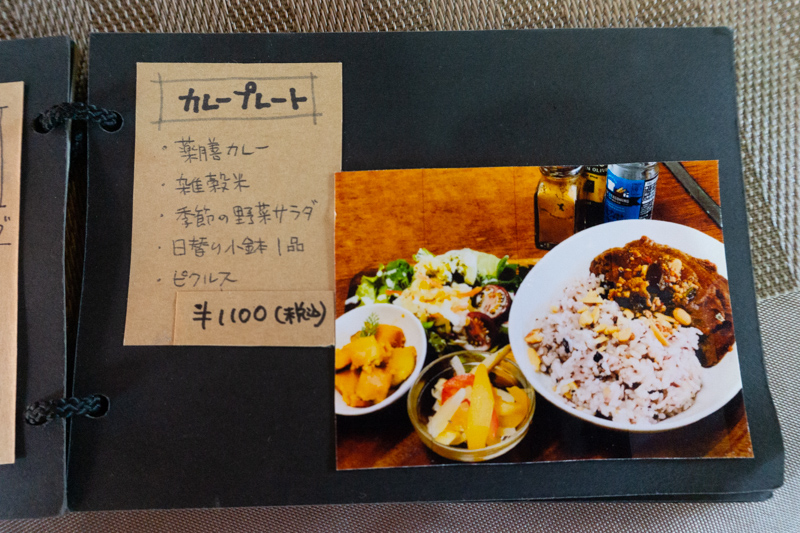 カレープレート
・薬膳カレー
・雑穀米
・季節の野菜サラダ
・日替り小鉢1品
・ピクルス
¥1100(税込)